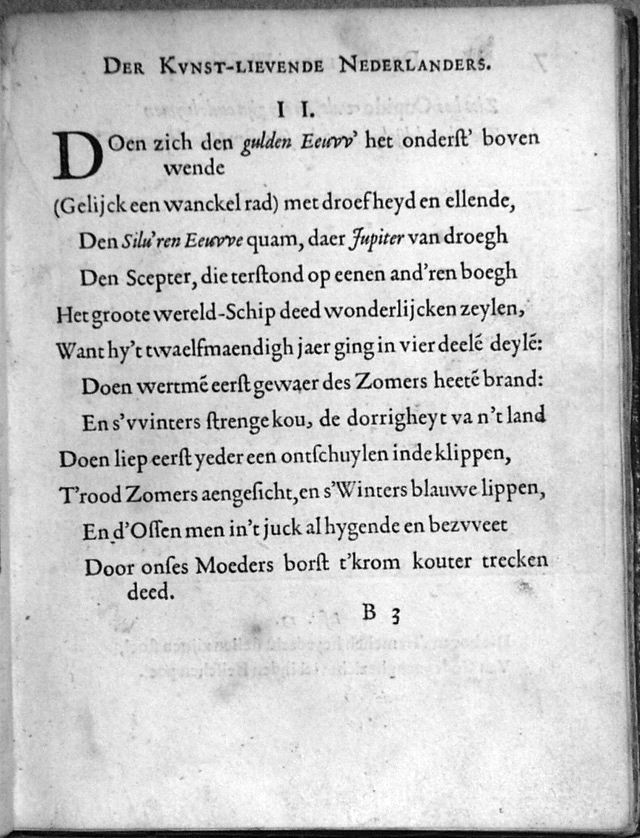 DER KVNST-LIEVENDE NEDERLANDERS.
I I.
DOen zich den gulden Eeuvv' het onderſt' boven
wende
(Gelijck een wanckel rad) met droefheyd en ellende,
Den Silu'ren Eeuvve quam, daer Jupiter van droegh
Den Scepter, die terſtond op eenen and'ren boegh
Het groote wereld-Schip deed wonderlijcken zeylen,
Want hy't twaelfmaendigh jaer ging in vier deelē deylē:
Doen wertmē eerſt gewaer des Zomers heetē brand:
En s'vvinters ſtrenge kou, de dorrigheyt van't land
Doen liep eerſt yeder een ontſchuylen inde klippen,
T'rood Zomers aengeſicht, en s'Winters blauwe lippen,
En d'Oſſen men in't juck al hygende en bezvveet
Door onſes Moeders borſt t'krom kouter trecken
deed.
B 3